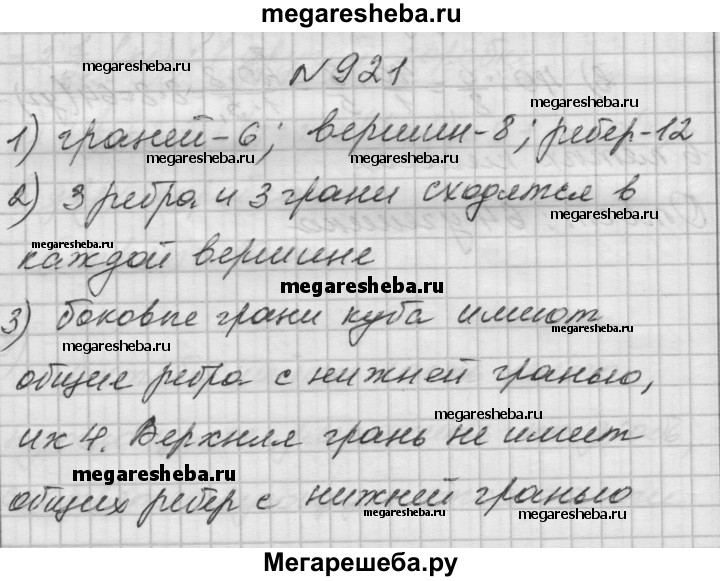 megaresheba.ru
N 921
megaresheba.ru
megaresheba.ru
1) граней-6; вершин-8; ребер-12
megaresheba.ru megaresheba.ru megaresheba.ru
2) 3 ребра и 3 грани сходятся в
megaresheba.ru
megaresheba.ru
каждой вершине
megaresheba.ru
3) боковые грани куба имеют
megaresheba.ru
megaresheba.ru
общие ребра с нижней гранью,
megaresheba.ru
их 4. Верхняя грань не имеет
megaresheba.ru
общих ребер с нижней гранью
megaresheba.ru
megaresheba.ru
Мегарешеба.ру